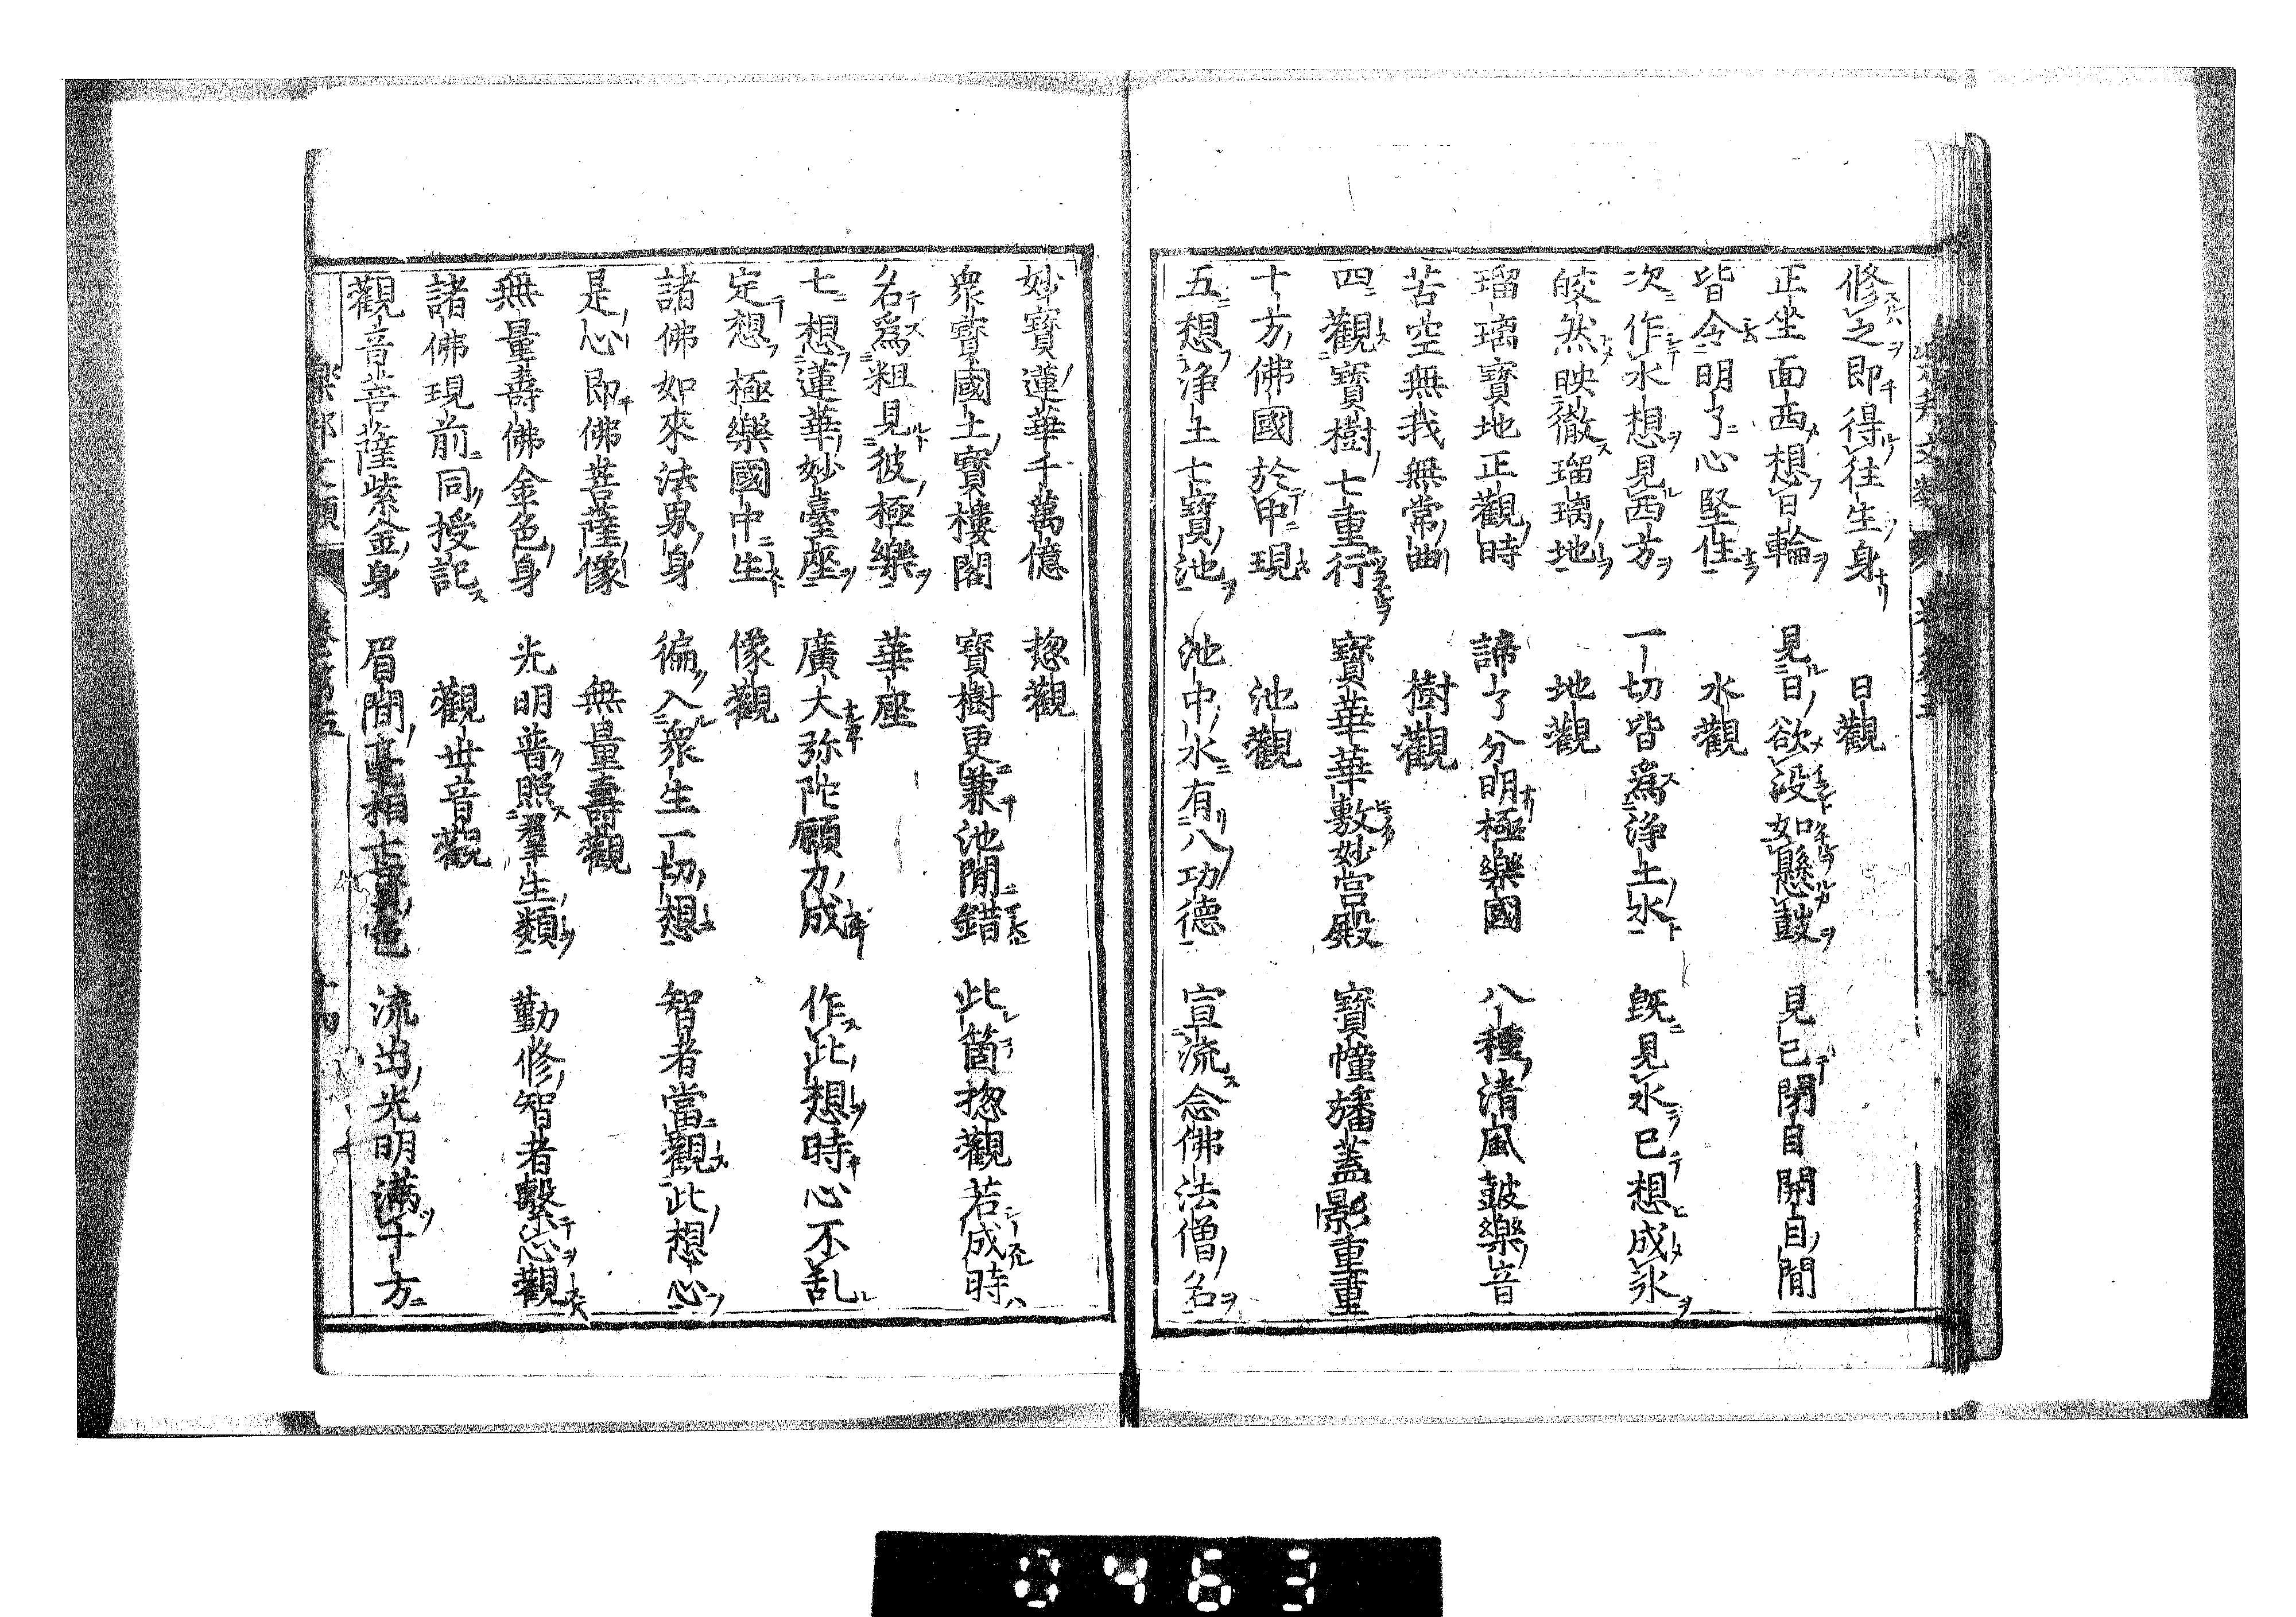 修之即得往生身　日觀
正坐面西想日輪　見日欲没如懸鼓　見已閉目開目間
皆令明了心堅住　水觀
次作水想見西方　一切皆為淨土水　既見水已想成氷
皎然映徹瑠璃地　地觀
瑠璃寶地正觀時　諦了分明極樂國　八種清風鼓樂音
苦空無我無常曲　樹觀
四觀寶樹七重行　寶華華敷妙宮殿　寶幢旛蓋影重重
十方佛國於中現　池觀
五想淨土七寶池　池中水有八功德　宣流念佛法僧名
妙寶蓮華千萬億　揔觀
衆寶國土寶樓閣　寶樹更兼池間錯　此箇揔觀若成時
名為粗見彼極樂　華座
七想蓮華妙臺座　廣大弥陀願力成　作此想時心不乱
定想極樂國中生　像觀
諸佛如來法界身　徧入衆生一切想　智者當觀此想心
是心即佛菩薩像　無量壽觀
無量壽佛金色身　光明普照羣生類　勤修智者繫念觀
諸佛現前同授記　觀世音觀
觀音菩薩紫金身　眉間毫相七寶色　流出光明滿十方
樂邦文類　卷第五
0463